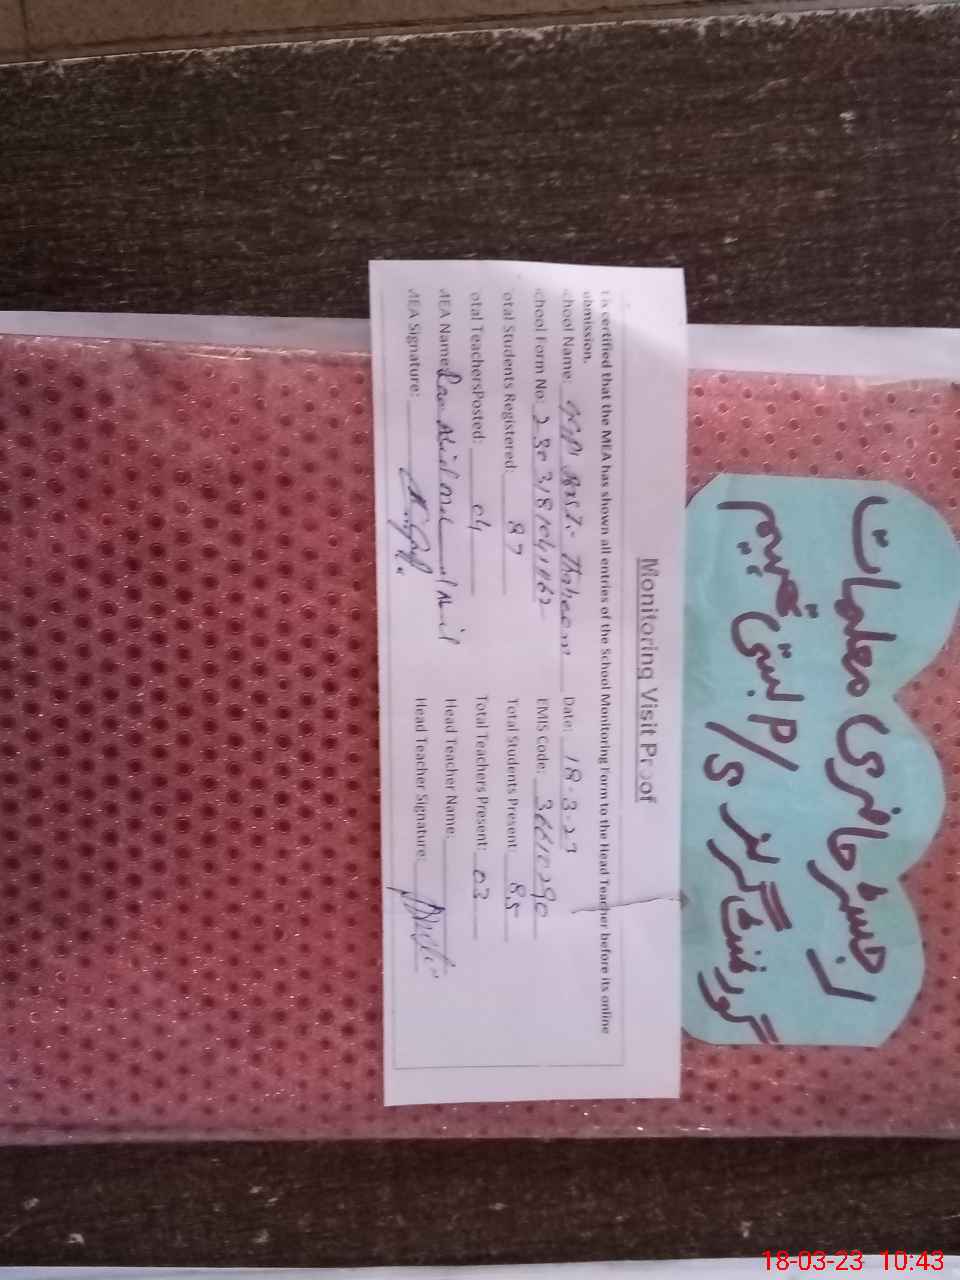 رجسٹر حاضری معلمات
گورنمنٹ گرلز P/S بستی تھہیم
Monitoring Visit Proof
t is certified that the MEA has shown all entries of the School Monitoring Form to the Head Teacher before its online
ubmission.
chool Name: Basti Thaheem Date: 18-3-23
chool Form No: EMIS Code:
otal Students Registered: 87 Total Students Present: 85
otal TeachersPosted: 04 Total Teachers Present: 03
MEA Name: Head Teacher Name:
MEA Signature: Head Teacher Signature:
18-03-23 10:43